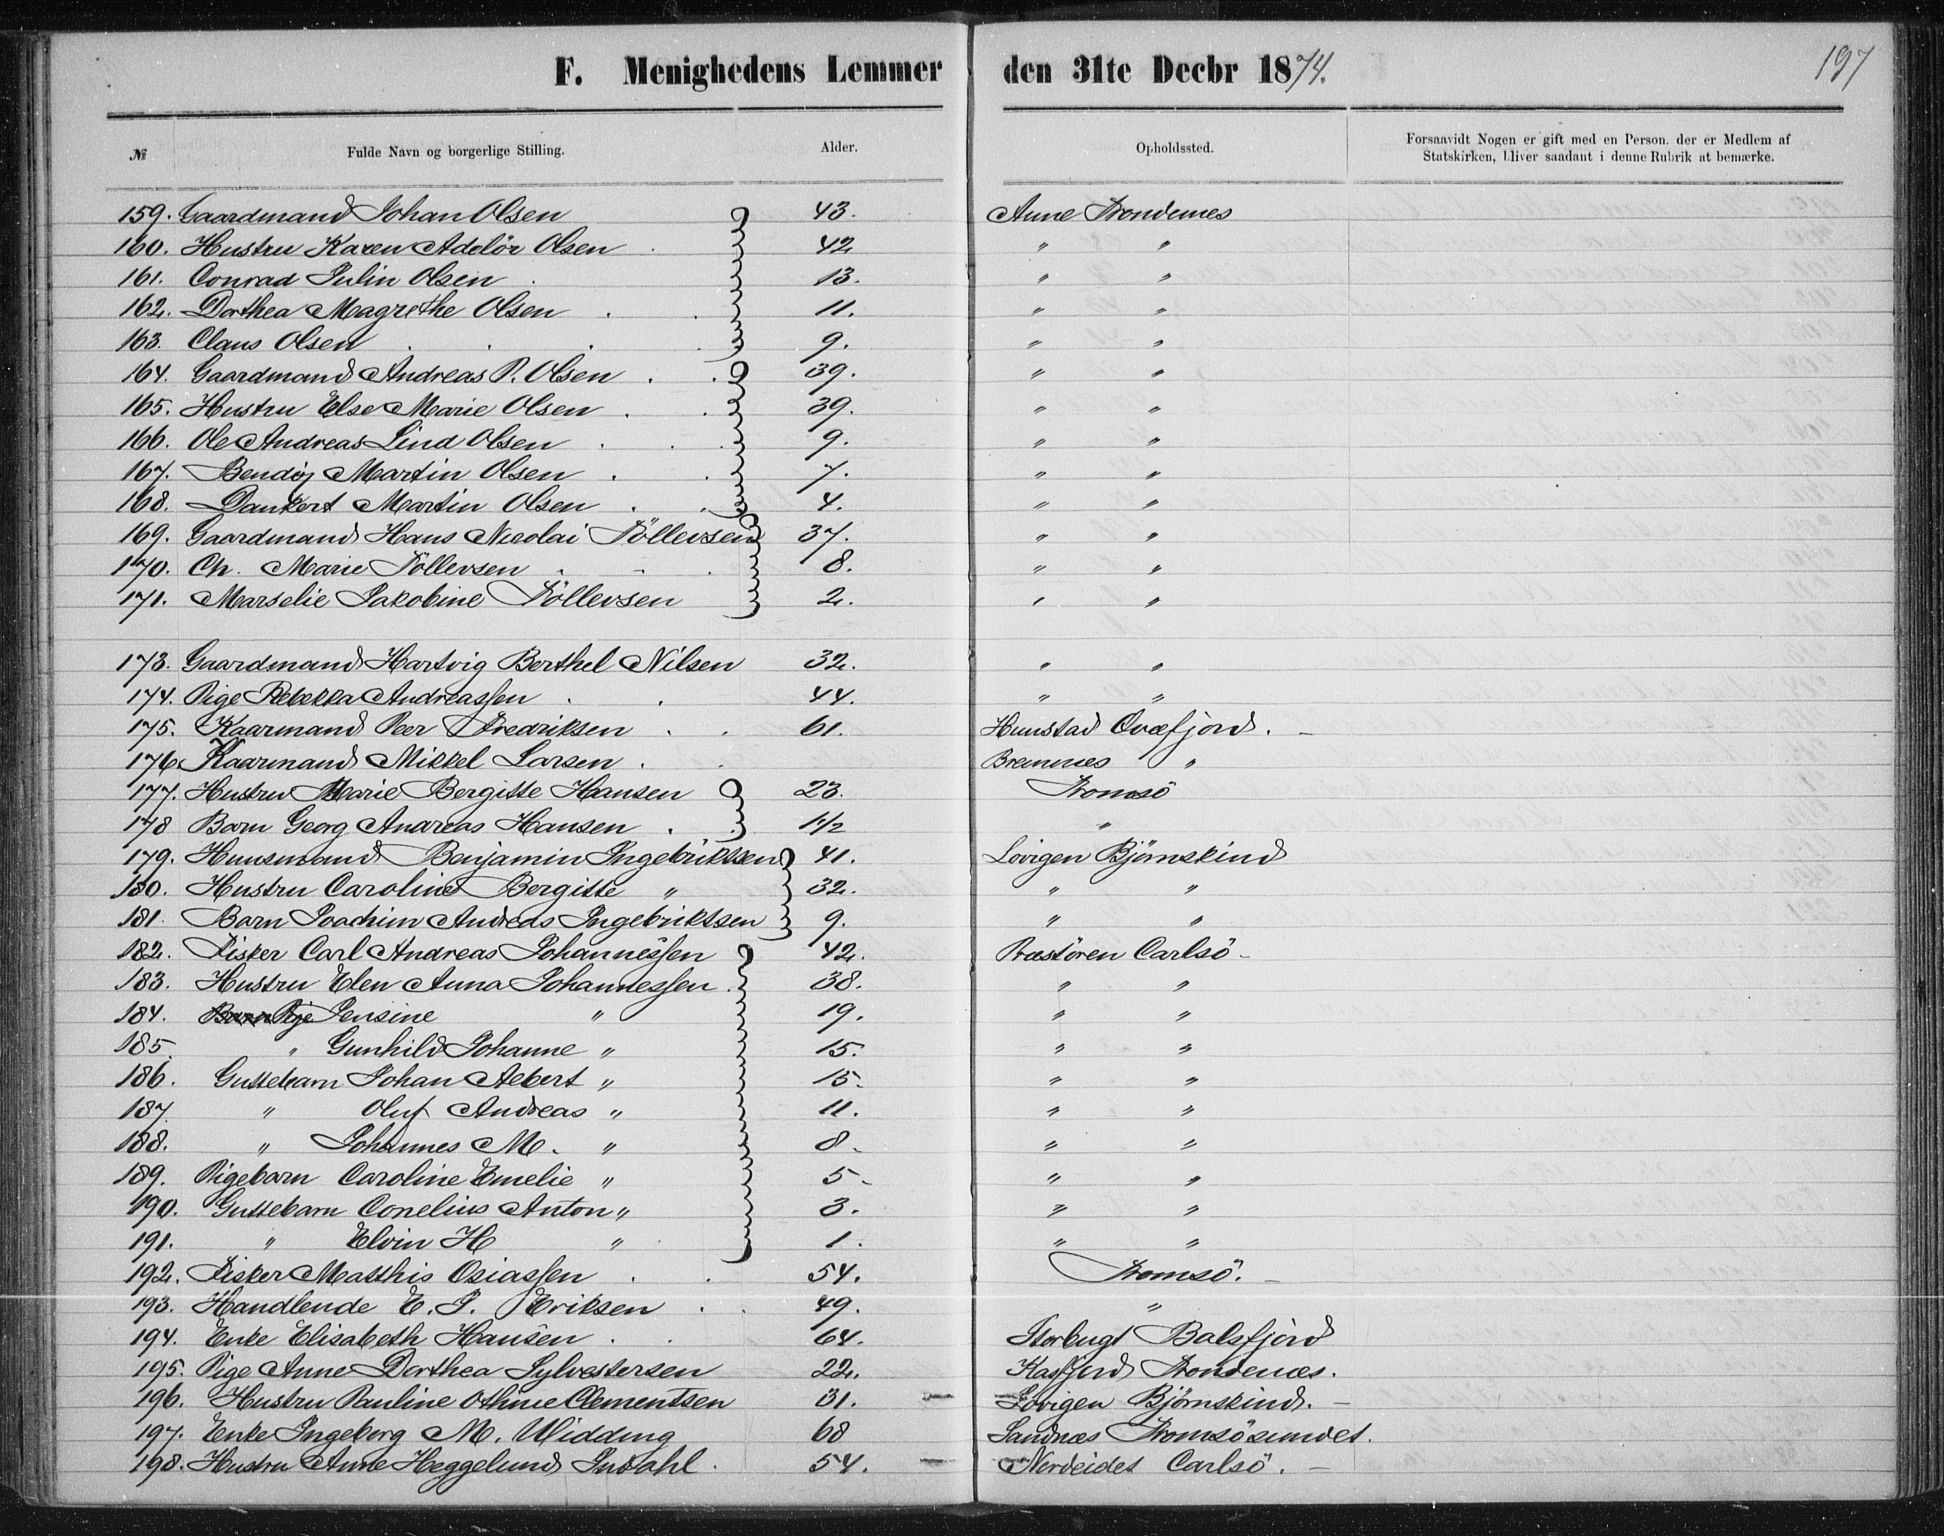 197
F. Menighedens Lemmer den 31te Decbr 1874.
№ Fulde Navn og borgerlige Stilling. Alder. Opholdssted. Forsaavidt Nogen er gift med en Person, der er Medlem af
Statskirken, bliver saadant i denne Rubrik at bemærke.
159. Gaardmand Johan Olsen 43. Aune Trondenes
160. Hustru Karen Adelör Olsen 42 " "
161. Conrad Julin Olsen 13. " "
162. Dorthea Magrethe Olsen 11. " "
163. Claus Olsen 9. " "
164. Gaardmand Andreas P. Olsen 39. " "
165. Hustru Else Marie Olsen 39. " "
166. Ole Andreas Lind Olsen 9. " "
167. Martin Olsen 7. " "
168. Dankert Martin Olsen 4. " "
169. Gaardmand Hans Nicolai Töllevsen 37. " "
170. Ch. Marie Töllevsen 8. " "
171. Marselie Jakobine Töllevsen 2. " "
173. Gaardmand Hartvig Berthel Nilsen 32. " "
174. Pige Rebekka Andreassen 44. " "
175. Kaarmand Peer Fredriksen 61. Hunstad Qvæfjord.
176. Kaarmand Mikkel Larsen Bremnes "
177. Hustru Marie Bergitte Hansen 23. Tromsö
178 Barn Georg Andreas Hansen 1 1/2 "
179. Huusmand Benjamin Ingebriktsen 41. Lovigen Bjørnskind
180. Hustru Caroline Bergitte " 32. " "
181. Barn Joachim Andreas Ingebriktsen 9. " "
182. Fisker Carl Andreas Johannessen 42. Carlsö
183. Hustru Elen Anna Johannessen 38. " "
184. Barn Pige Jensine " 19. " "
185. " Gunhild Johanne " 15. " "
186. Guttebarn Johan Aebert " 15. " "
187. " Oluf Andreas " 11. " "
188. " Johannes M. " 8. " "
189. Pigebarn Caroline Emelie " 5 " "
190. Guttebarn Conelius Anton " 3. " "
191. " Elvin H " 1. " "
192. Fisker Matthis Osiassen 54. Tromsö.
193. Handlende E. P. Eriksen 49. "
194. Enke Elisabeth Hansen 64. Storbugt Balsfjord
195. Pige Anne Dorthea Sylvestersen 22. Kasfjord Trondenæs.
196. Hustru Pauline Othine Clementsen 31. Lovigen Bjørnskind.
197. Enke Ingeborg M. Widding 68 Sandnæs Tromsösundet.
198. Hustru Anne Heggelund Indahl. 54. Nordeidet Carlsö.